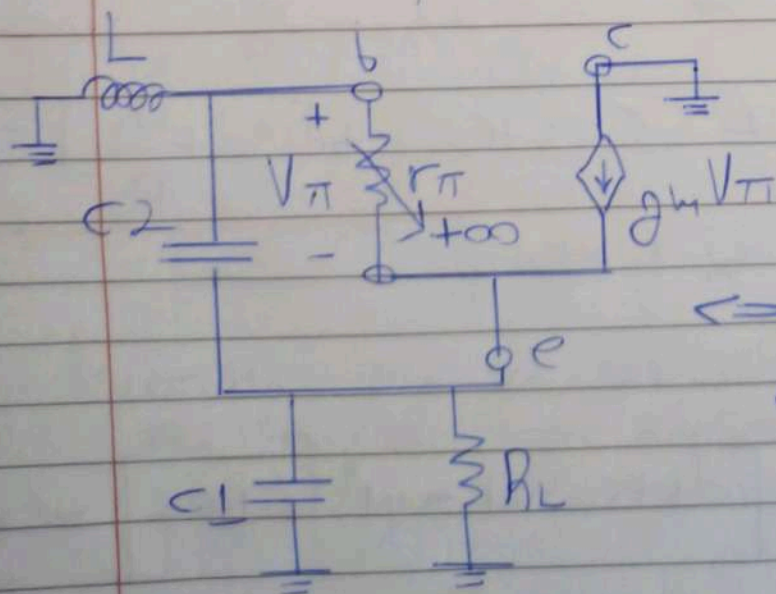 L b c
+
Vπ rπ gm Vπ
C2 +∞
-
<=
e
C1 RL